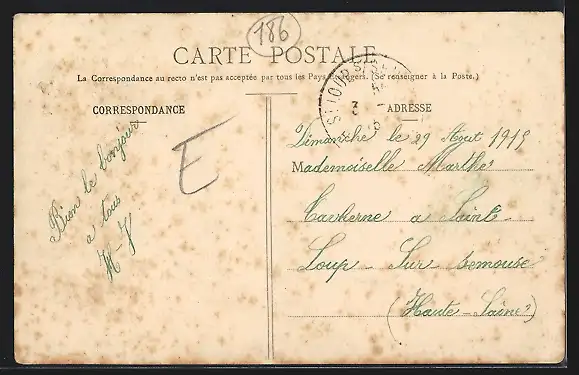 186
CARTE POSTALE
La Correspondance au recto n'est pas acceptée par tous les Pays Étrangers. (Se renseigner à la Poste.)
CORRESPONDANCE
Bien le bonjour
a tous
H-J
E
ST LOUP S/SE
3
ADRESSE
Dimanche le 29 Aout 1915
Mademoiselle Marthe
Taverne a Saint-
Loup-Sur-Semouse
(Haute-Saône)